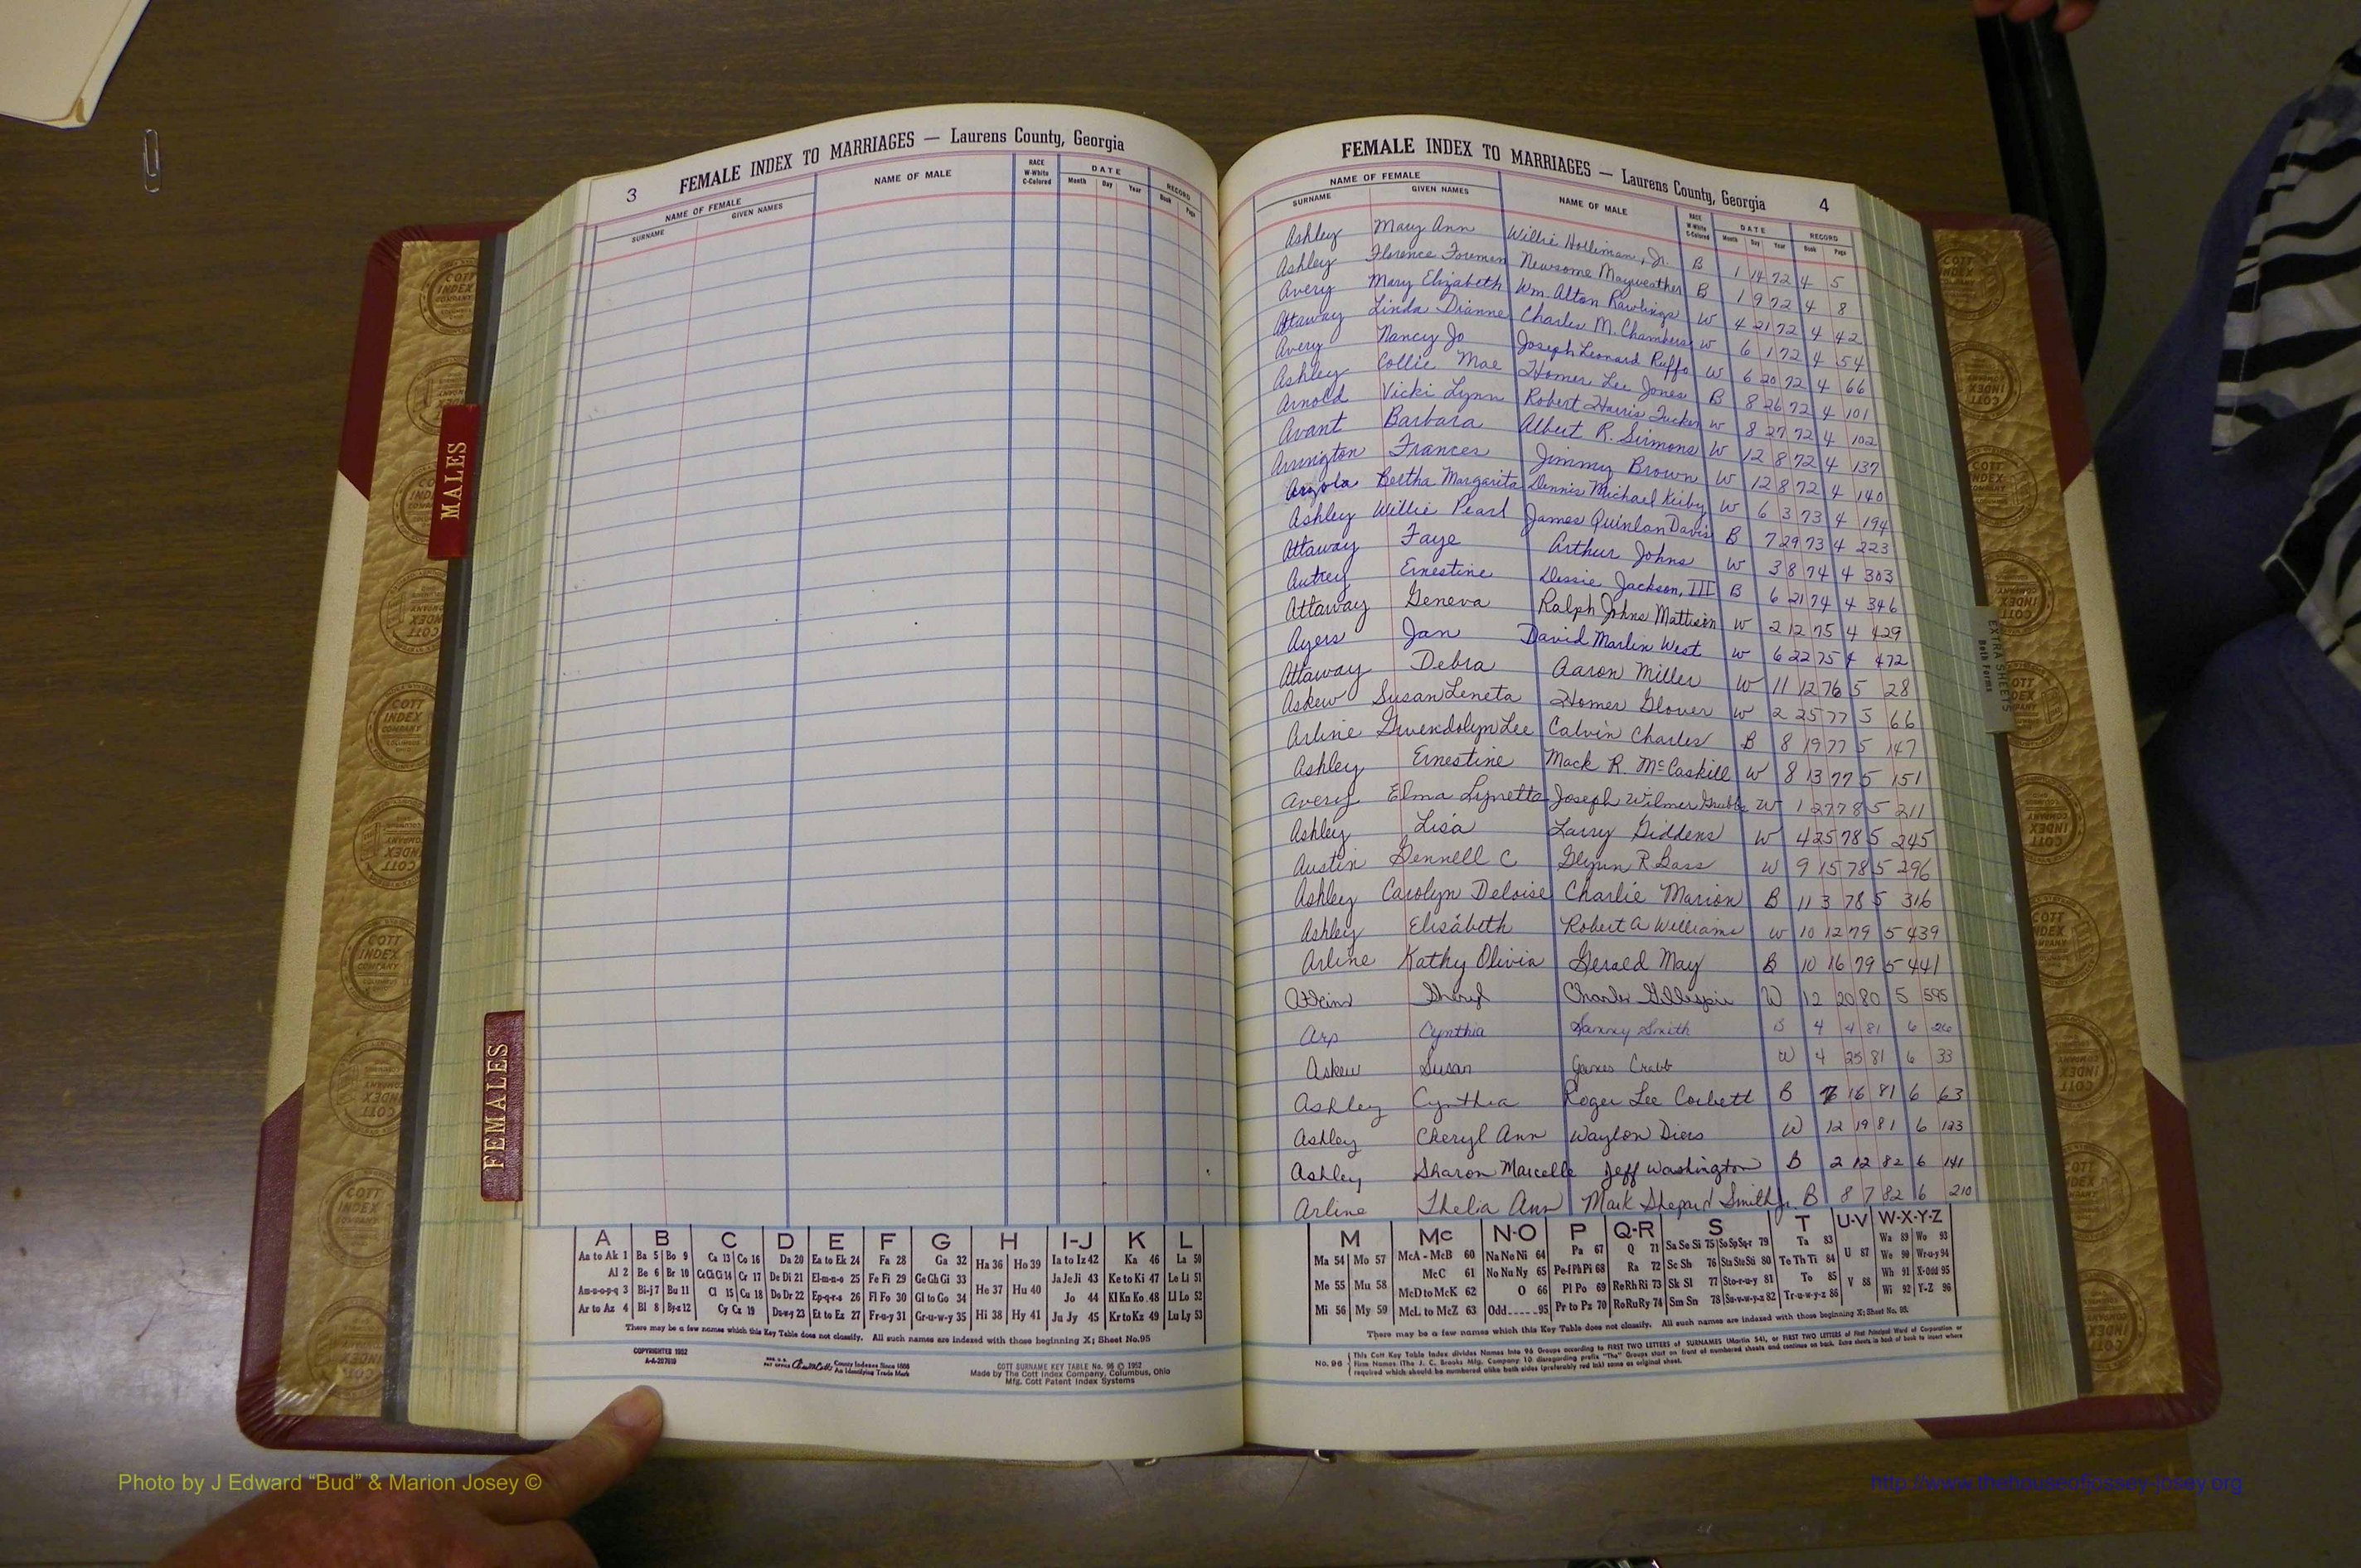 3
FEMALE INDEX TO MARRIAGES — Laurens County, Georgia
NAME OF FEMALE
SURNAME GIVEN NAMES
NAME OF MALE
RACE
W-White
C-Colored
DATE
Month Day Year
RECORD
Book Page
FEMALE INDEX TO MARRIAGES — Laurens County, Georgia 4
NAME OF FEMALE
SURNAME GIVEN NAMES
NAME OF MALE
RACE
W-White
C-Colored
DATE
Month Day Year
RECORD
Book Page
Ashley Mary Ann Willie Holliman, Jr. B 1 14 72 4 5
Ashley Florence Foreman Newsome Mayweather B 1 9 72 4 8
Avery Mary Elizabeth Wm. Alton Rawlings W 4 21 72 4 42
Attaway Linda Dianne Charles M. Chambers W 6 1 72 4 54
Avery Nancy Jo Joseph Leonard Ruffo W 6 20 72 4 66
Ashley Collie Mae Homer Lee Jones B 8 26 72 4 101
Arnold Vicki Lynn Robert Harris Tucker W 8 27 72 4 102
Avant Barbara Albert R. Sirmons W 12 8 72 4 137
Arrington Frances Jimmy Brown W 12 8 72 4 140
Argola Bertha Margarita Dennis Michael Kirby W 6 3 73 4 194
Ashley Willie Pearl James Quinlan Davis B 7 29 73 4 223
Attaway Faye Arthur Johns W 3 8 74 4 303
Autrey Ernestine Dessie Jackson, III B 6 21 74 4 346
Attaway Geneva Ralph Johns Mattison W 2 12 75 4 429
Ayers Jan David Marlin West W 6 22 75 4 472
Attaway Debra Aaron Miller W 11 12 76 5 28
Askew Susan Leneta Homer Glover W 2 25 77 5 66
Arline Gwendolyn Lee Calvin Charles B 8 19 77 5 147
Ashley Ernestine Mack R. McCaskill W 8 13 77 5 151
Avery Elma Lynette Joseph Wilmer Grubbs W 1 27 78 5 211
Ashley Lisa Larry Giddens W 4 25 78 5 245
Austin Gennell C Glynn R Bass W 9 15 78 5 296
Ashley Carolyn Deloise Charlie Marion B 11 3 78 5 316
Ashley Elisabeth Robert A Williams W 10 12 79 5 439
Arline Kathy Olivia Gerald May B 10 16 79 5 441
Atkins Sheryl Charles Gillespie W 12 20 80 5 595
Arp Cynthia Sammy Smith B 4 4 81 6 26
Askew Susan James Crabb W 4 25 81 6 33
Ashley Cynthia Roger Lee Corbett B 6 16 81 6 63
Ashley Cheryl Ann Waylon Diers W 12 19 81 6 123
Ashley Sharon Marcelle Jeff Washington B 2 12 82 6 141
Arline Thelia Ann Mark Shepard Smith Jr. B 8 7 82 6 210
MALES
FEMALES
EXTRA SHEETS
Both Forms
COTT INDEX COMPANY
A B C D E F G H I-J K L
Aa to Ak 1 Ba 5 Bo 9 Ca 13 Co 16 Da 20 Ea to Ek 24 Fa 28 Ga 32 Ha 36 Ho 39 Ia to Iz 42 Ka 46 La 50
Al 2 Be 6 Br 10 Ce Ch Ci 14 Cr 17 De Di 21 El-m-n-o 25 Fe Fi 29 Ge Gh Gi 33 Ja Je Ji 43 Ke to Ki 47 Le Li 51
Am-n-o-p-q 3 Bi-j 7 Bu 11 Cl 15 Cu 18 Do Dr 22 Ep-q-r-s 26 Fl Fo 30 Gl to Go 34 He 37 Hu 40 Jo 44 Kl Kn Ko 48 Ll Lo 52
Ar to Az 4 Bl 8 By-z 12 Cy Cz 19 Du-w-y 23 Et to Ez 27 Fr-u-y 31 Gr-u-w-y 35 Hi 38 Hy 41 Ju Jy 45 Kr to Kz 49 Lu Ly 53
There may be a few names which this Key Table does not classify. All such names are indexed with those beginning X; Sheet No.95
COPYRIGHTED 1952
County Indexes Since 1888
An Identifying Trade Mark
COTT SURNAME KEY TABLE No. 96 © 1952
Made by The Cott Index Company, Columbus, Ohio
Mfg. Cott Patent Index Systems
M Mc N-O P Q-R S T U-V W-X-Y-Z
Ma 54 Mo 57 McA - McB 60 Na Ne Ni 64 Pa 67 Q 71 Sa Se Si 75 So Sp Sq-r 79 Ta 83 U 87 Wa 89 Wo 93
McC 61 No Nu Ny 65 Pe-f Ph Pi 68 Ra 72 Sc Sh 76 Sta Ste Sti 80 Te Th Ti 84 We 90 Wr-u-y 94
Me 55 Mu 58 McD to McK 62 O 66 Pl Po 69 Re Rh Ri 73 Sk Sl 77 Sto-r-u-y 81 To 85 V 88 Wh 91 X-Odd 95
Mi 56 My 59 McL to McZ 63 Odd-----95 Pr to Pz 70 Ro Ru Ry 74 Sm Sn 78 Su-v-w-y-z 82 Tr-u-w-y-z 86 Wi 92 Y-Z 96
There may be a few names which this Key Table does not classify. All such names are indexed with those beginning X; Sheet No. 95.
No. 96 This Cott Key Table Index divides Names into 96 Groups according to FIRST TWO LETTERS of SURNAMES (Martin 54), or FIRST TWO LETTERS of First Principal Word of Corporation or
Firm Names (The J. C. Brooks Mfg. Company 10 disregarding prefix "The" Groups start on front of numbered sheets and continue on back. Extra sheets in back of book to insert where
required which should be numbered alike both sides (preferably red ink) same as original sheet.
Photo by J Edward “Bud” & Marion Josey ©
http://www.thehouseofjossey-josey.org